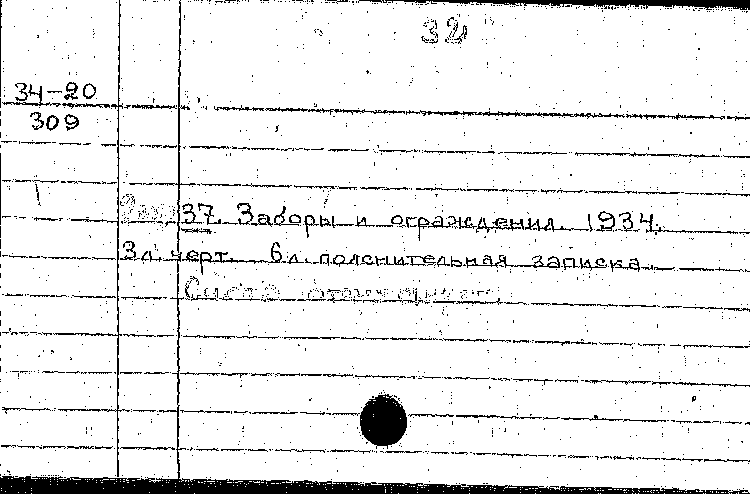 32
34-20
309
37. Заборы и ограждения. 1934.
3л. черт. 6л. полснительная записка.